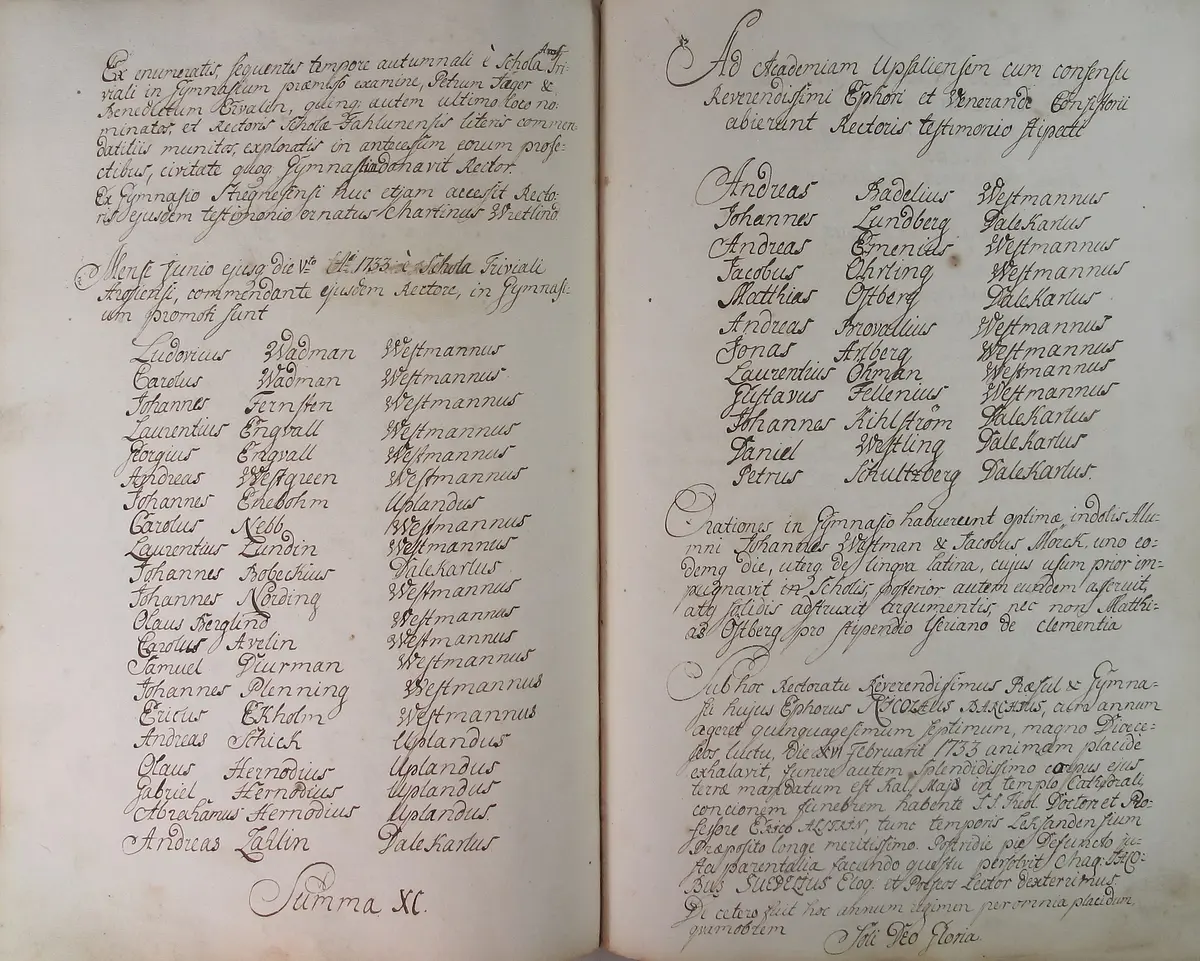 Ex enumeratis, sequentis tempore autumnali è Schola Aros. Tri-
viali in Gymnasium præmisso examine, Petrum Jæger &
Benedictum Rivalin, quinq; autem ultimo loco no-
minatos, et Rectoris Scholæ Fahlunensis literis commen
datitiis munitos, exploratis in antecessum eorum profe-
ctibus, civitate quoq; Gymnastica donavit Rector.
Ex Gymnasio Stregnesensi huc etjam accessit Recto-
ris ejusdem testimonio ornatus Martinus Wretlind
Mense Junio ejusq; die V.to 1733 è Schola Triviali
Arosiensi, commendante ejusdem Rectore, in Gymnasi-
um promoti sunt
Ludovicus Wadman Westmannus
Carolus Wadman Westmannus
Johannes Fernsten Westmannus
Laurentius Engvall Westmannus
Georgius Engvall Westmannus
Andreas Westgreen Westmannus
Johannes Enebohm Uplandus
Carolus Nebb Westmannus
Laurentius Lundin Westmannus
Johannes Bobeckius Dalekarlus
Johannes Nording Westmannus
Olaus Berglind Westmannus
Carolus Avelin Westmannus
Samuel Diurman Westmannus
Johannes Plenning Westmannus
Ericus Ekholm Westmannus
Andreas Schick Uplandus
Olaus Hernodius Uplandus
Gabriel Hernodius Uplandus
Abrahamus Hernodius Uplandus.
Andreas Zahlin Dalekarlus
Summa XC.
Ad Academiam Upsaliensem cum consensu
Reverendissimi Ephori et Venerande Consistorii
abierunt Rectoris testimonio stipati
Andreas Badelius Westmannus
Johannes Lundberg Dalekarlus
Andreas Emenius Westmannus
Jacobus Ohrling Westmannus
Matthias Ostberg Dalekarlus
Andreas Brovallius Westmannus
Jonas Arlberg Westmannus
Laurentius Ohman Westmannus
Gustavus Fellenius Westmannus
Johannes Kihlström Dalekarlus
Daniel Westling Dalekarlus
Petrus Schultzberg Dalekarlus.
Orationes in Gymnasio habuerunt optimæ indolis Alu-
mni Johannes Westman & Jacobus Morck, uno eo-
demq; die, uterq; de lingva latina, cujus usum prior im-
pugnavit in Scholis, posterior autem eundem asseruit,
atq; solidis adstruxit argumentis, nec non Matthi-
as Ostberg pro stipendio de clementia
Sub hoc Rectoratu Reverendissimus Præsul & Gymna-
sii hujus Ephorus NICOLAUS BARCHIUS, cum annum
ageret quinquagesimum septimum, magno Dioece-
seos luctu, die XVI Februarii 1733 animam placide
exhalavit, funere autem splendidissimo corpus ejus
terræ mandatum est Kal. Maji in templo Cathedrali
concionem funebrem habente S.S. Theol. Doctor et Pro-
fessore ERICO ALSTRIN, tunc temporis Leksandensium
Præposito longe meritissimo. Postridie pie Defuncto ju-
sta parentalia facundo questu persolvit Mag: JACO-
BUS SUEDELIUS Eloq. et Poëseos Lector dexterrimus.
De cetero fuit hoc annum regimen per omnia placidum,
quamobrem
Soli DEO Gloria.